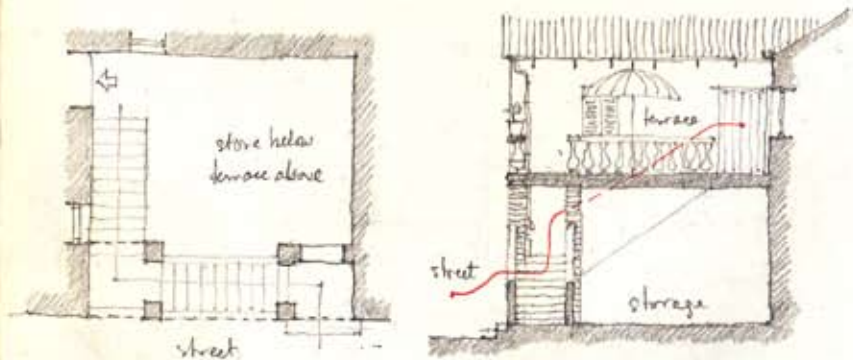 store below
terrace above
street
terrace
street
storage